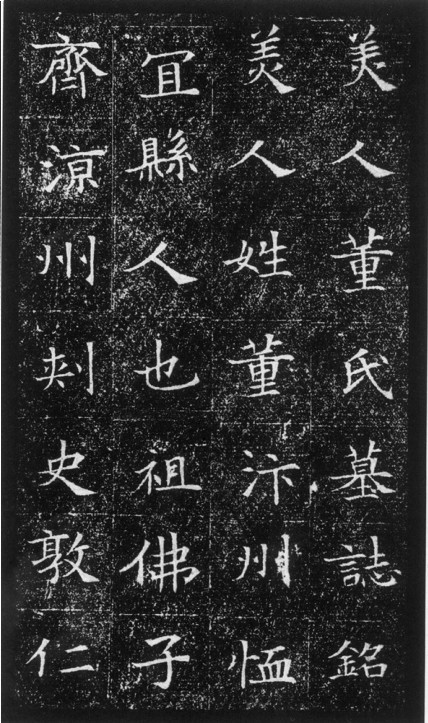 美人董氏墓誌銘
美人姓董汴州恤
冝縣人也祖佛子
齊涼州刾史敦仁